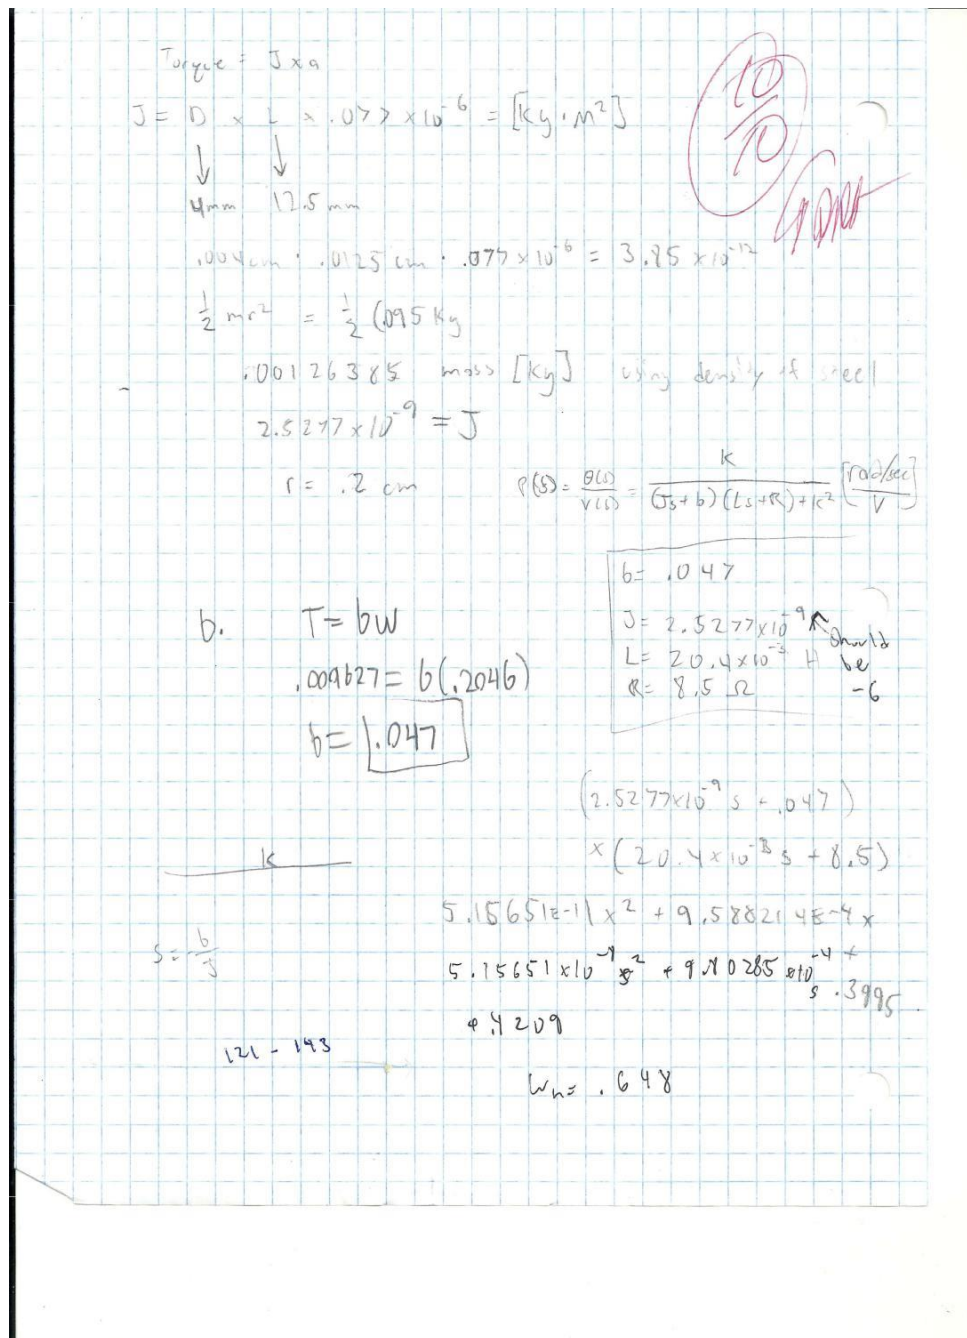 Torque = J x a
10/10
J = D x L x .077 x 10^-6 = [kg·m²]
↓ ↓
4mm 12.5 mm
.004 cm · .0125 cm · .077 x 10^-6 = 3.85 x 10^-12
½ mr² = ½ (.095 Kg
.00126385 mass [kg] using density of steel
2.5277 x 10^-9 = J
r = .2 cm
P(s) = θ(s)/V(s) = K/((Js+b)(Ls+R)+K²) [rad/sec / V]
b = .047
J = 2.5277x10^-9 ↖ should be -6
L = 20.4x10^-3 H
R = 8.5 Ω
b. T = bw
.009627 = b(.2046)
b = .047
(2.5277x10^-9 s + .047)
x (20.4 x 10^-3 s + 8.5)
K
5.15651E-11 x² + 9.58821 4E-4 x
s = b/J
5.15651 x10 s² + 9.80285 x10^-4 s + .3995
+ .4209
121 - 143
Wn = .648